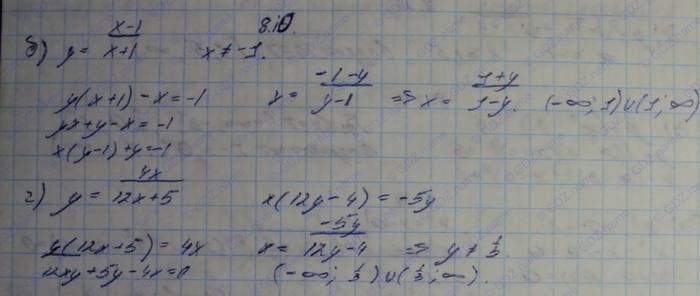 8.10.
б) y = (x-1)/(x+1)    x ≠ -1.
y(x+1) - x = -1    x = (-1-y)/(y-1) => x = (1+y)/(1-y).    (-∞; 1)∪(1; ∞)
yx + y - x = -1
x(y-1) + y = -1
г) y = 4x/(12x+5)    x(12y-4) = -5y
y(12x+5) = 4x    x = (-5y)/(12y-4) => y ≠ 1/3.
12xy + 5y - 4x = 0    (-∞; 1/3)∪(1/3; ∞).